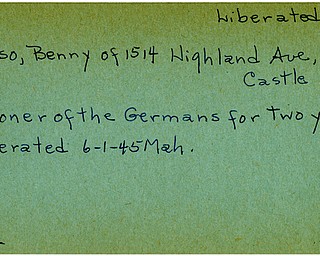 Liberated
so, Benny of 1514 Highland Ave,
Castle
oner of the Germans for Two y
erated 6-1-45 Mah.